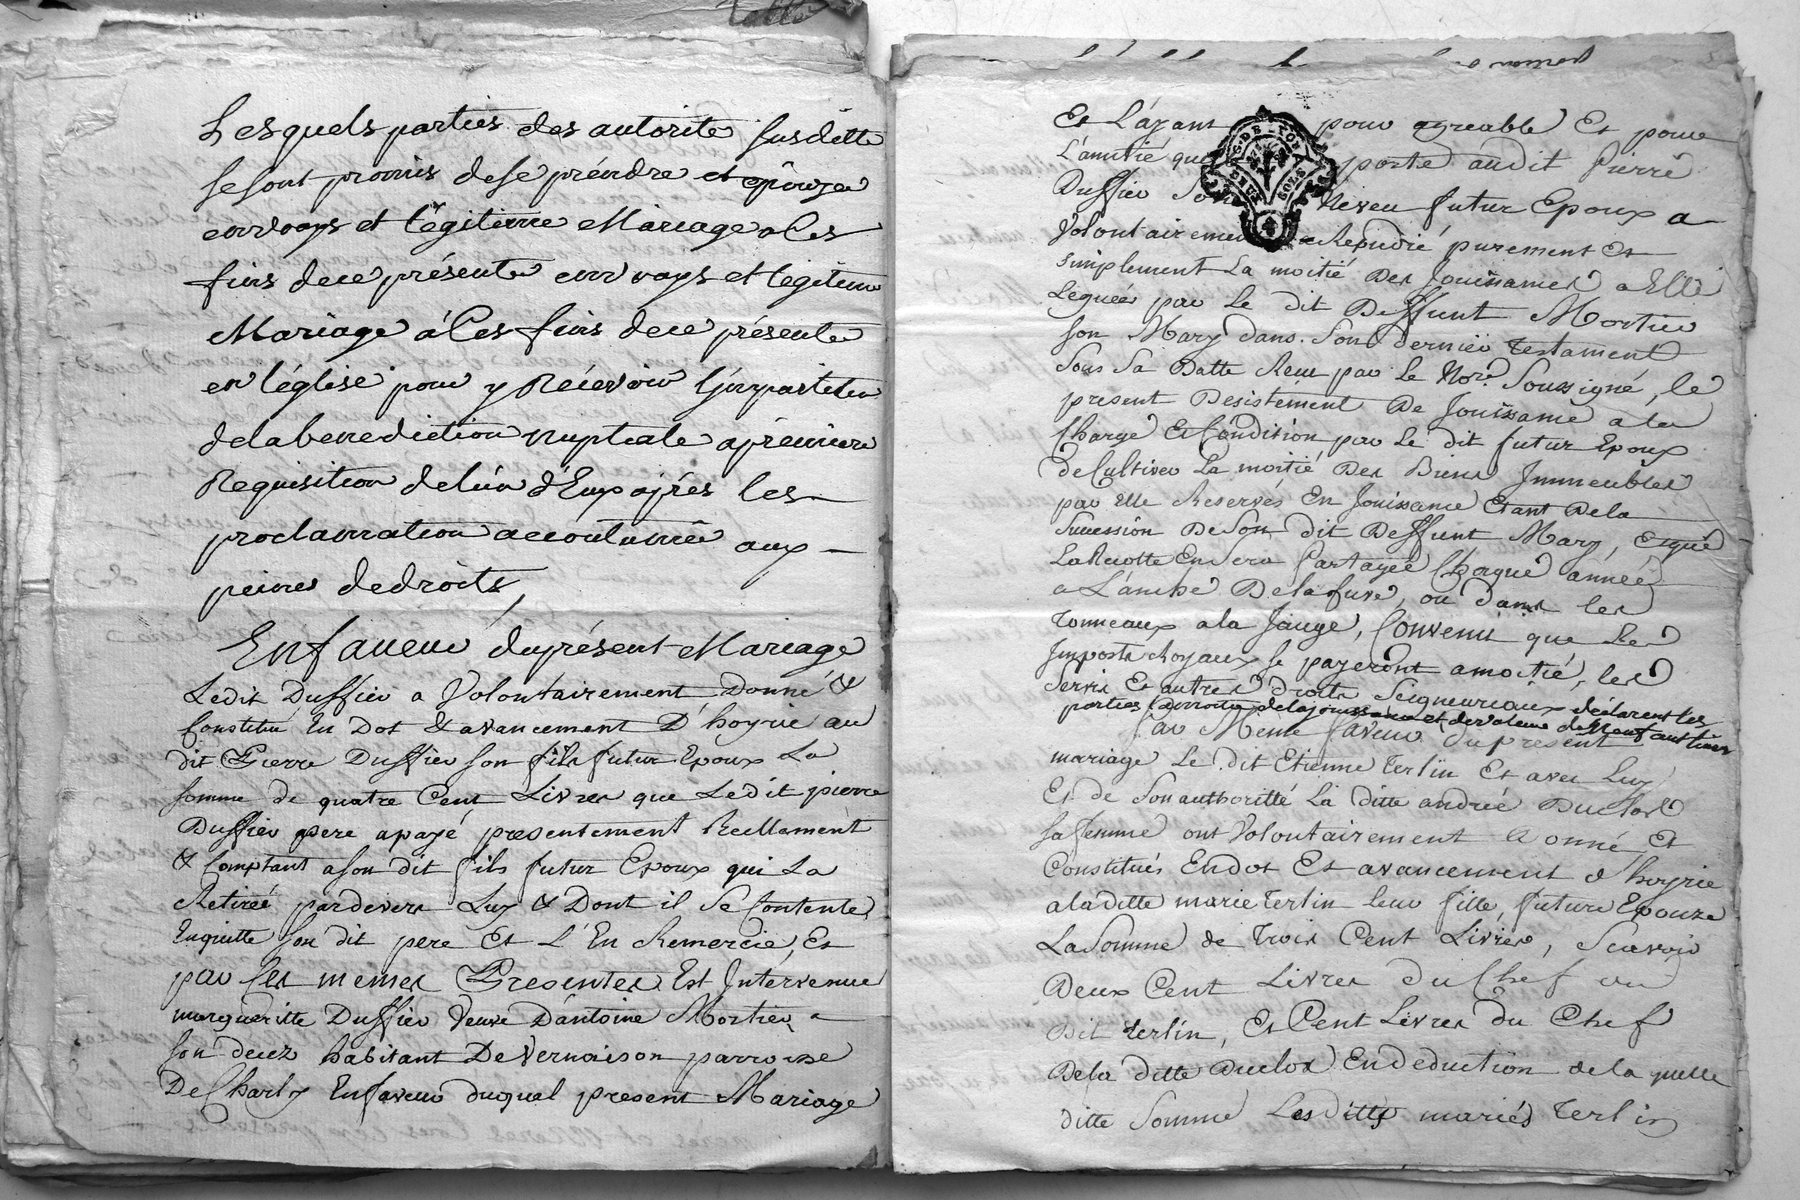 Lesquels parties des autorite susditte
se sont promis de se prendre et epouzer
en vrays et legitime Mariage a les
fins de ce présente en vrays et legitime
Mariage á les fins de ce présente
en l'église pour y Récevoir
de la benediction nuptiale a prémiere
Requisition de l'ún d'Eux ajrés les
proclamation accoutumée aux
peines de droits,
En faveur du présent Mariage
Ledit Duffier a Volontairement Donné &
Constitué En Dot & avancement D'hoyrie au
dit Pierre Duffier son fils futur Epoux La
somme de quatre Cent Livres que Ledit pierre
Duffier pere a payé, presentement Reellement
& Comptant a son dit fils futur Epoux qui La
Retireé pardevers Luy & Dont il Se Contente,
Enquitte son dit pere Et L'En Remercie, Et
par Ses memes Presentes Est Intervenue
margueritte Duffier Veuve D'antoine Mortier a
son decez habitant De Vernaison parroisse
De Charly En faveur duquel present Mariage
Et L'ayant pour agreable Et pour
L'amitié que porte audit Pierre
Duffier Son Neveu futur Epoux a
Volontairement Repudié purement Et
simplement La moitié Des Jouissances a Elle
Leguées par Le dit Deffunt Mortier
son Mary dans Son dernier testament
Sous Sa Datte Reçu par Le Nore. Soussigné, le
present Desistement De Jouissance a la
Charge Et Condition par Le dit futur Epoux
de Cultiver La moitié Des Biens Immeubles
par Elle Reservés En Jouissance Etant De la
Succession De Son dit Deffunt Mary, Et que
La Recolte En Sera Partageé Chaque anneé
a L'anche De la Cuve, ou dans les
Tonneaux a la Jauge, Convenu que les
Imposts Royaux Se payeront a moitié, les
Servis Et autres droits Seigneuriaux déclarent les
parties la moitie de la jouissance et de valeur de Neuf
Par Meme faveur du present
mariage Le dit Etienne Terlin Et avec Luy
Et de Son authoritté La ditte andrée Duclos
sa femme ont Volontairement Donné Et
Constitués En dot Et avancement d'hoyrie
a laditte marie Terlin leur fille, future Epouze
La Somme de Trois Cent Livres, Scavoir
Deux Cent Livres du Chef du
Dit terlin, Et Cent Livres Du Chef
De la ditte Duclos En deduction de la quelle
ditte Somme Les Dits mariés Terlin